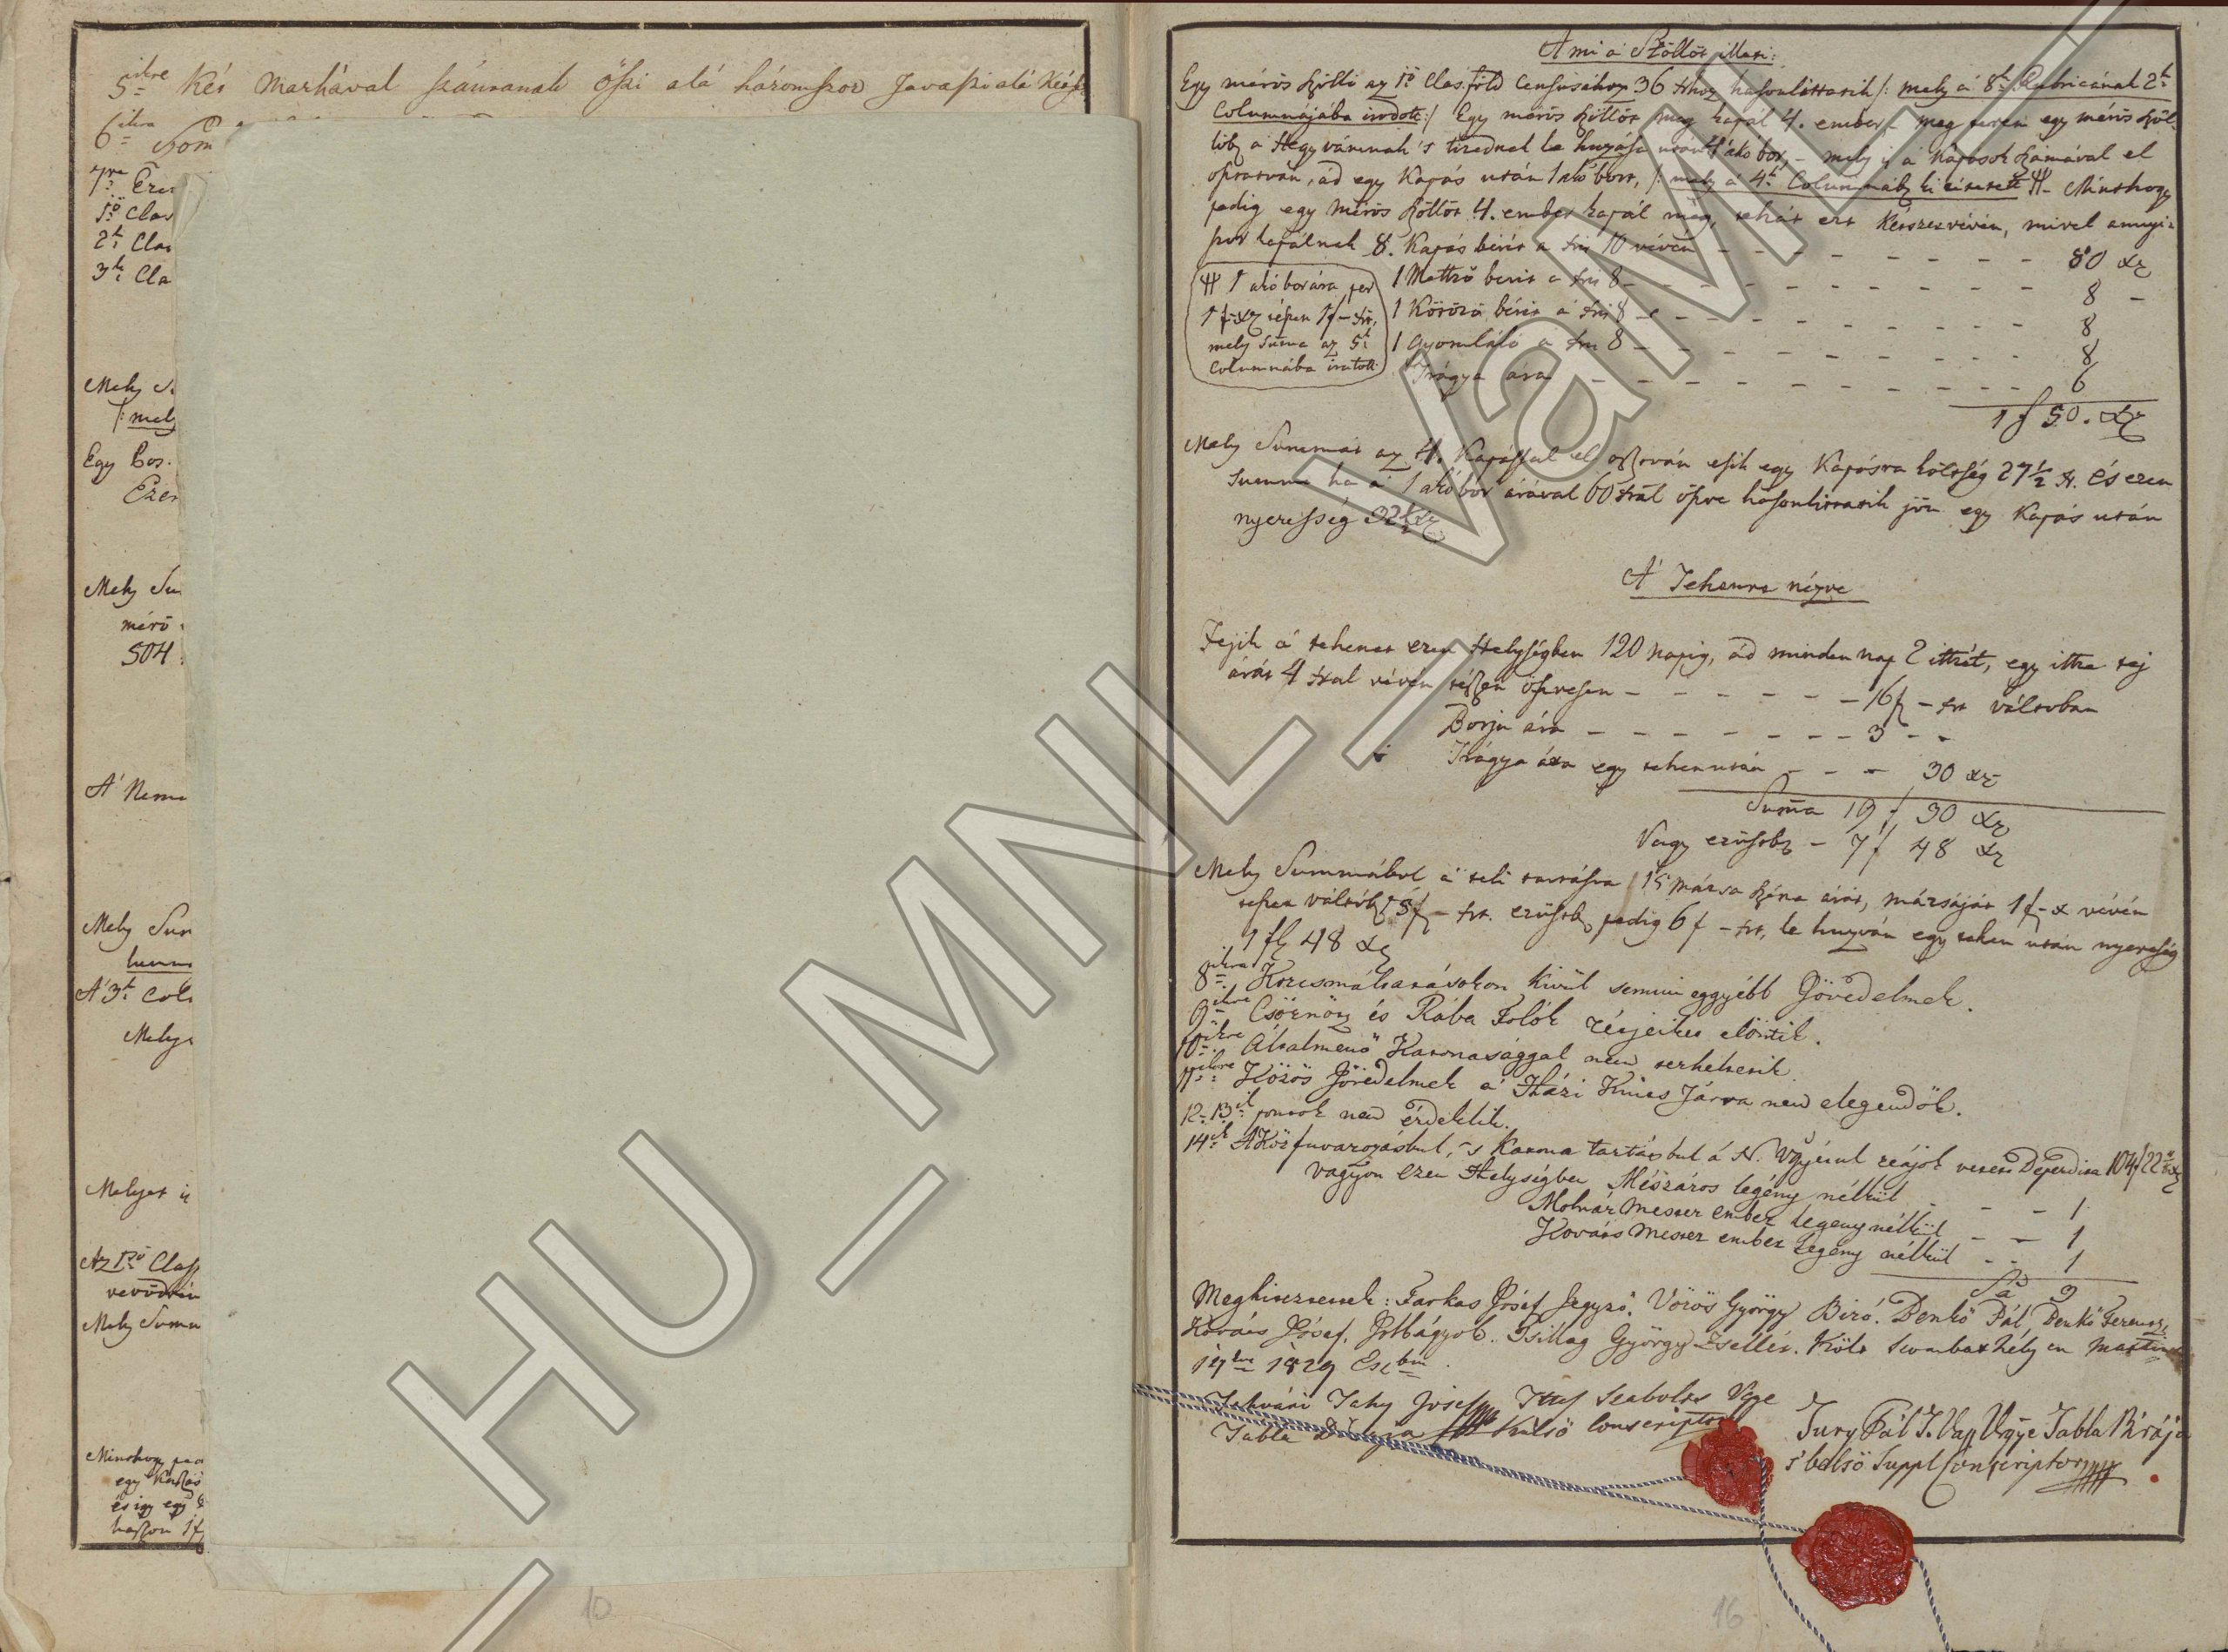 5ikre Két Marhával szántanak őszi alá háromszor Tavaszi alá
6ikra
7re
1ő Clas
2k Clas
3k Cla
Mely
/: mely
Egy
Ezen
Mely Su
mérő
504
A' Neme
Mely Sum
A' 3k Col
Melye
Melyet
Az 1ső Class
Mely Summ
Minthogy
egy Kaszás
és igy egy
haszon 1f
10
A mi a Szőllőt illeti:
Egy mérős szőllő az 1ő Clas. föld Censusához 36 xrhoz hasonlittatik /: mely a' 8k Rubricának 2k
Columnájába irodott :/ Egy mérős szőllőt meg kapál 4. ember meg terem egy mérős szöl-
lőb a' Hegyvámnak 's tizednek le huzása után 4 akó bor, - mely is a' Kapások számával el
osztatván, ád egy Kapás után 1 akó bort, /: mely a' 4k Columnába ki tétetett # - Minthogy
pedig egy mérős szőllőt 4. ember kapál meg, tehát ezt kétszer vévén, mivel annyi-
szor kapálnak 8. Kapás bérit a xrs 10 vévén - - - - - - 80 xr
# 1 akó bor ára per
1 f - xr tészen 1f - xr,
mely Suma az 5k
Columnába iratott
1 Mettző bérit a xris 8 - - - - - - 8 -
1 Kötöző bérit a xris 8 - - - - - - 8
1 Gyomláló a xris 8 - - - - - - 8
Trágya ára - - - - - - 6
1 f 50. xr
Mely Summát az 4. Kapással el osztván esik egy Kapásra költség 27 1/2 xr. És ezen
Summa ha a' 1 akó bor árával 60 xral öszve hasonlittatik jön egy Kapás után
nyeresség 32 1/2 xr
A' Tehenre nézve
Fejik a' tehenet ezen Helységben 120 napig, ád minden nap 2 ittzét, egy ittze tej
árát 4 xral vévén tészen öszvesen - - - - - - 16f - xr váltoban
Borju ára - - - - - - 3 - -
Trágya ára egy tehen után - - - 30 xr
Suma 19 f 30 xr
Vagy ezüstb - 7 f 48 xr
Mely Summábol a' teli tartásra 15 mársa széna árát, mársáját 1 f - x vévén
teszen váltób 15 f - xr. ezüstb pedig 6 f - xr, le huzván egy tehen után nyereség
1 f 48 xr
8ikra Korcsmáltatásokon kivül semmi eggyébb Jövedelmek.
9ikre Csörnötz és Rába Folók rétjeiket elöntik.
10ikre Általmenő Katonasággal nem terheltetik.
11ikre Közös Jövedelmek a' Házi Kints Tárra nem elegendők.
12-13ik pontok nem érdeklik.
14ik A' Köz fuvarozásbul, 's Katona tartásbul a' N. Vgyéttül reájok vetett Deperdita 104f 22 xr
vagyon ezen Helységben Mészáros legény nélkül - - - 1
Molnár Mester ember legeny nélkül - - 1
Kováts Mester ember legény nélkül - - 1
Sa 3
Meghitettessek: Farkas Jósef Jegyző. Vörös György Biró. Denkő Pál, Denkő Ferencz,
Kováts Jósef, Jobbágyok. Tsillag György Zsellér. Költ Szombathély en
1829 Esztben
Tahy Jósef Ttes Szabolts Vgye
Tabla Birája külső Conscriptor
Jury Pál T. Vass Vgye Tabla Birája
's belső Suppl Conscriptor
16
HU_MNL_VaML_